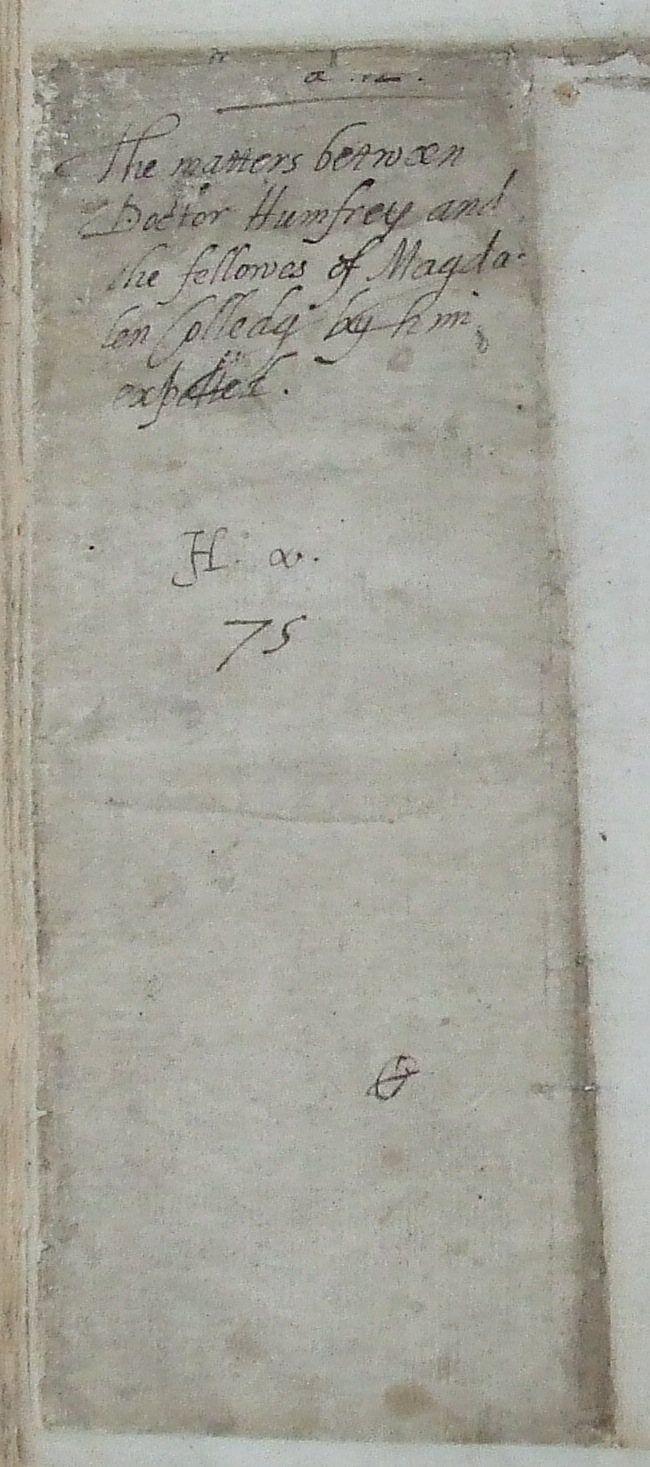 The matters between
Doctor Humfrey and
the fellowes of Magda-
len Colledg by him
expelled.
H. a.
75